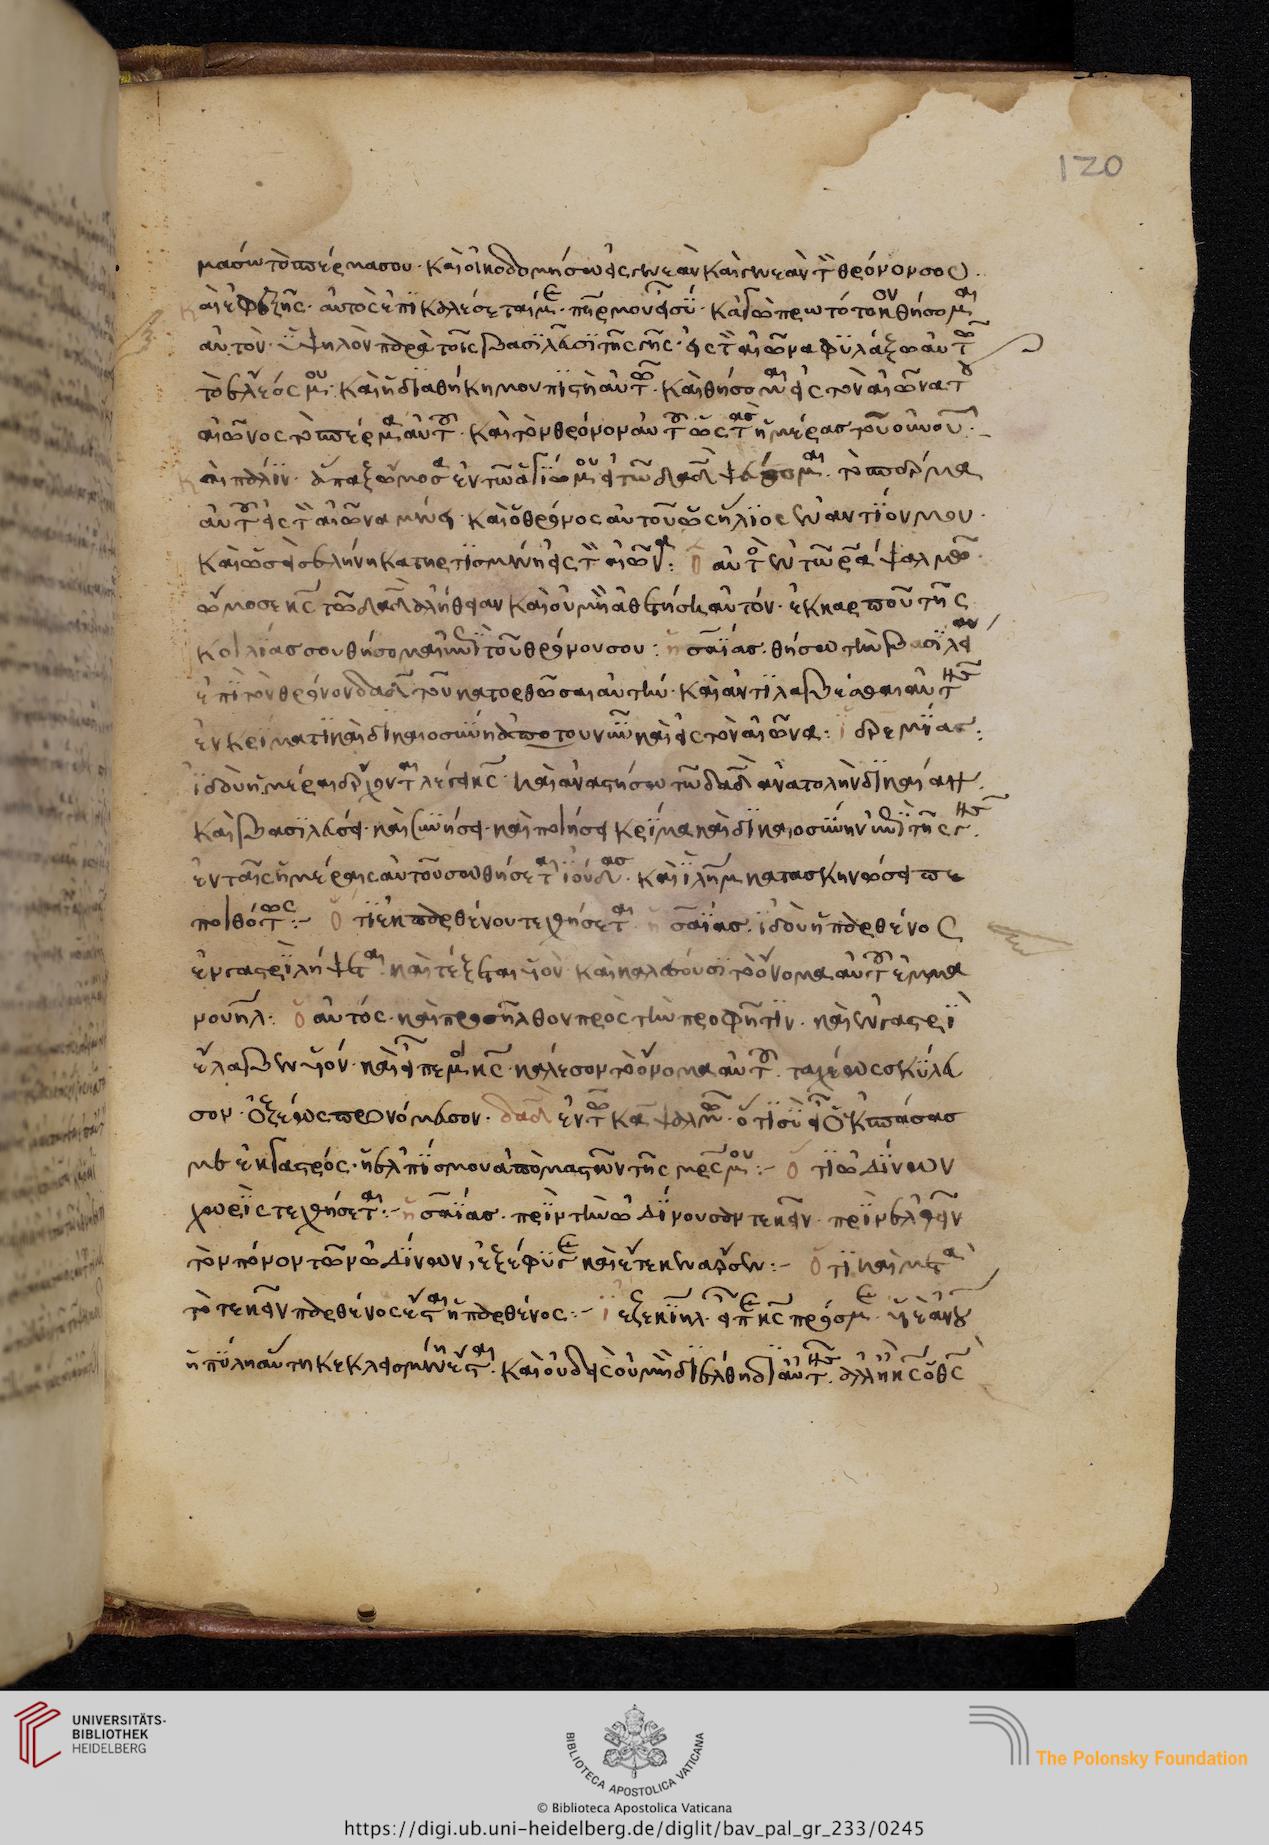 120
μάσω τὸ σπέρμα σου· καὶ οἰκοδομήσω εἰς γενεὰν καὶ γενεὰν τὸν θρόνον σου·
καὶ ἐφεξῆς· αὐτὸς ἐπικαλέσεταί με· πατήρ μου εἶ σύ· κἀγὼ πρωτότοκον θήσομαι
αὐτόν· ὑψηλὸν παρὰ τοῖς βασιλεῦσι τῆς γῆς· εἰς τὸν αἰῶνα φυλάξω αὐτῷ
τὸ ἔλεός μου· καὶ ἡ διαθήκη μου πιστὴ αὐτῷ· καὶ θήσομαι εἰς τὸν αἰῶνα τοῦ
αἰῶνος τὸ σπέρμα αὐτοῦ· καὶ τὸν θρόνον αὐτοῦ ὡς τὰς ἡμέρας τοῦ οὐνοῦ·
καὶ πάλιν· ἅπαξ ὤμοσα ἐν τῷ ἁγίῳ μου εἰ τῷ δαδ ψεύσομαι· τὸ σπέρμα
αὐτοῦ εἰς τὸν αἰῶνα μένει· καὶ ὁ θρόνος αὐτοῦ ὡς ἥλιος ἐναντίον μου·
καὶ ὡς σελήνη κατηρτισμένη εἰς τὸν αἰῶνα: ὁ αὐτὸς ἐν τῷ ρλα ψαλμῷ·
ὤμοσε κς τῷ δαδ ἀλήθειαν καὶ οὐ μὴ ἀθετήσει αὐτόν· ἐκ καρποῦ τῆς
κοιλίας σου θήσομαι ἐπὶ τοῦ θρόνου σου: ἡσαΐας· θήσω τὴν βασιλείαν
ἐπὶ τὸν θρόνον δαδ τοῦ κατορθῶσαι αὐτήν· καὶ ἀντιλαβέσθαι αὐτῆς
ἐν κρίματι καὶ δικαιοσύνῃ ἀπὸ τοῦ νῦν καὶ εἰς τὸν αἰῶνα: ἱερεμίας:
ἰδοὺ ἡμέραι ἔρχονται λέγει κς· καὶ ἀναστήσω τῷ δαδ ἀνατολὴν δικαίαν·
καὶ βασιλεύσει· καὶ συνήσει· καὶ ποιήσει κρίμα καὶ δικαιοσύνην ἐπὶ τῆς γῆς·
ἐν ταῖς ἡμέραις αὐτοῦ σωθήσεται ἰούδας· καὶ ἱλημ κατασκηνώσει πε
ποιθότως:– ὅτι ἐκ παρθένου τεχθήσεται· ἡσαΐας· ἰδοὺ ἡ παρθένος
ἐν γαστρὶ λήψεται· καὶ τέξεται υἱόν· καὶ καλέσουσι τὸ ὄνομα αὐτοῦ ἐμμα
νουήλ: ὁ αὐτός· καὶ προσῆλθον πρὸς τὴν προφῆτιν· καὶ ἐν γαστρὶ
ἔλαβεν υἱόν· καὶ εἶπέ μοι κς· κάλεσον τὸ ὄνομα αὐτοῦ ταχέως σκύλευ
σον· ὀξέως προνόμευσον· δαδ ἐν τῷ κα ψαλμῷ· ὅτι σὺ εἶ ὁ ἐκσπάσας
με ἐκ γαστρός· ἡ ἐλπίς μου ἀπὸ μαστῶν τῆς μρς μου:– ὅτι ὠδίνων
χωρὶς τεχθήσεται:– ἡσαΐας· πρὶν τὴν ὠδίνουσαν τεκεῖν· πρὶν ἐλθεῖν
τὸν πόνον τῶν ὠδίνων, ἐξέφυγε καὶ ἔτεκεν ἄρσεν:– ὅτι καὶ μετὰ
τὸ τεκεῖν παρθένος ἔσται ἡ παρθένος:– ἰεζεκιήλ· εἶπε κς πρός με· υἱὲ ἀνου
ἡ πύλη αὕτη κεκλεισμένη ἔσται· καὶ οὐδεὶς οὐ μὴ διέλθῃ δι αὐτῆς· ἀλλ ἢ κς ὁ θς
UNIVERSITÄTS-
BIBLIOTHEK
HEIDELBERG
BIBLIOTECA APOSTOLICA VATICANA
The Polonsky Foundation
© Biblioteca Apostolica Vaticana
https://digi.ub.uni-heidelberg.de/diglit/bav_pal_gr_233/0245